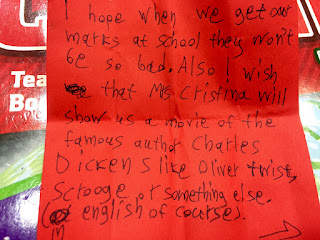 I hope when we get our
marks at school they won't
be so bad. Also I wish
that Ms. Cristina will
show us a movie of the
famous author Charles
Dickens like Oliver twist,
Scrooge or something else.
( english of course).
Tea
Bo